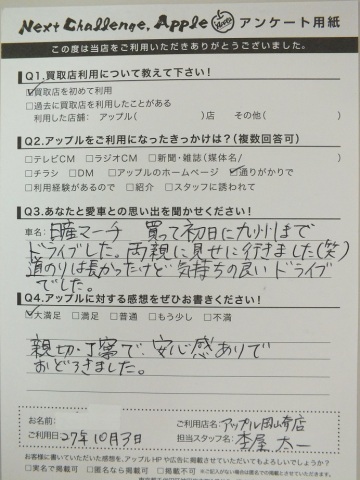 Next Challenge, Apple アンケート用紙
この度は当店をご利用いただきありがとうございました。
Q1.買取店利用について教えて下さい!
☑買取店を初めて利用
□過去に買取店を利用したことがある
利用した店舗: アップル( )店 その他( )
Q2.アップルをご利用になったきっかけは?(複数回答可)
□テレビCM □ラジオCM □新聞・雑誌(媒体名/ )
□チラシ □DM □アップルのホームページ ☑通りがかりで
□利用経験があるので □紹介 □スタッフに誘われて
Q3.あなたと愛車との思い出を聞かせてください!
車名: 日産マーチ 買って初日に九州まで
ドライブしました。両親に見せに行きました(笑)
道のりは長かったけど気持ちの良いドライブ
でした。
Q4.アップルに対する感想をぜひお書きください!
☑大満足 □満足 □普通 □もう少し □不満
親切・丁寧で、安心感ありで
おどろきました。
お名前:
ご利用日: 27年10月3日
ご利用店名: アップル岡山南店
担当スタッフ名: 太一
お書きいただいた感想を、アップルHPや広告に掲載させていただいてもよろしいでしょうか?
□実名で掲載可 □匿名なら掲載可 □掲載不可